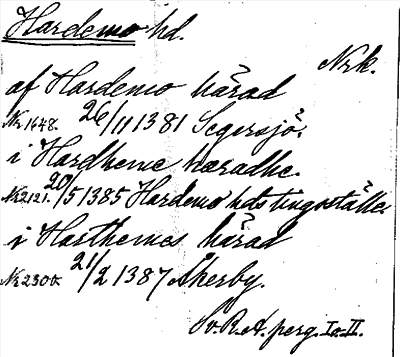 Hardemo hd.
Nrk.
af Hardemo härad
Nr 1648. 26/11 1381 Segersjö.
i Hardheme hæradhe.
Nr 2121. 20/5 1385 Hardemo hds tingsställe.
i Harthemes härad
Nr 2300. 21/2 1387 Åkerby.
Sv. R. A. perg. I o. II.